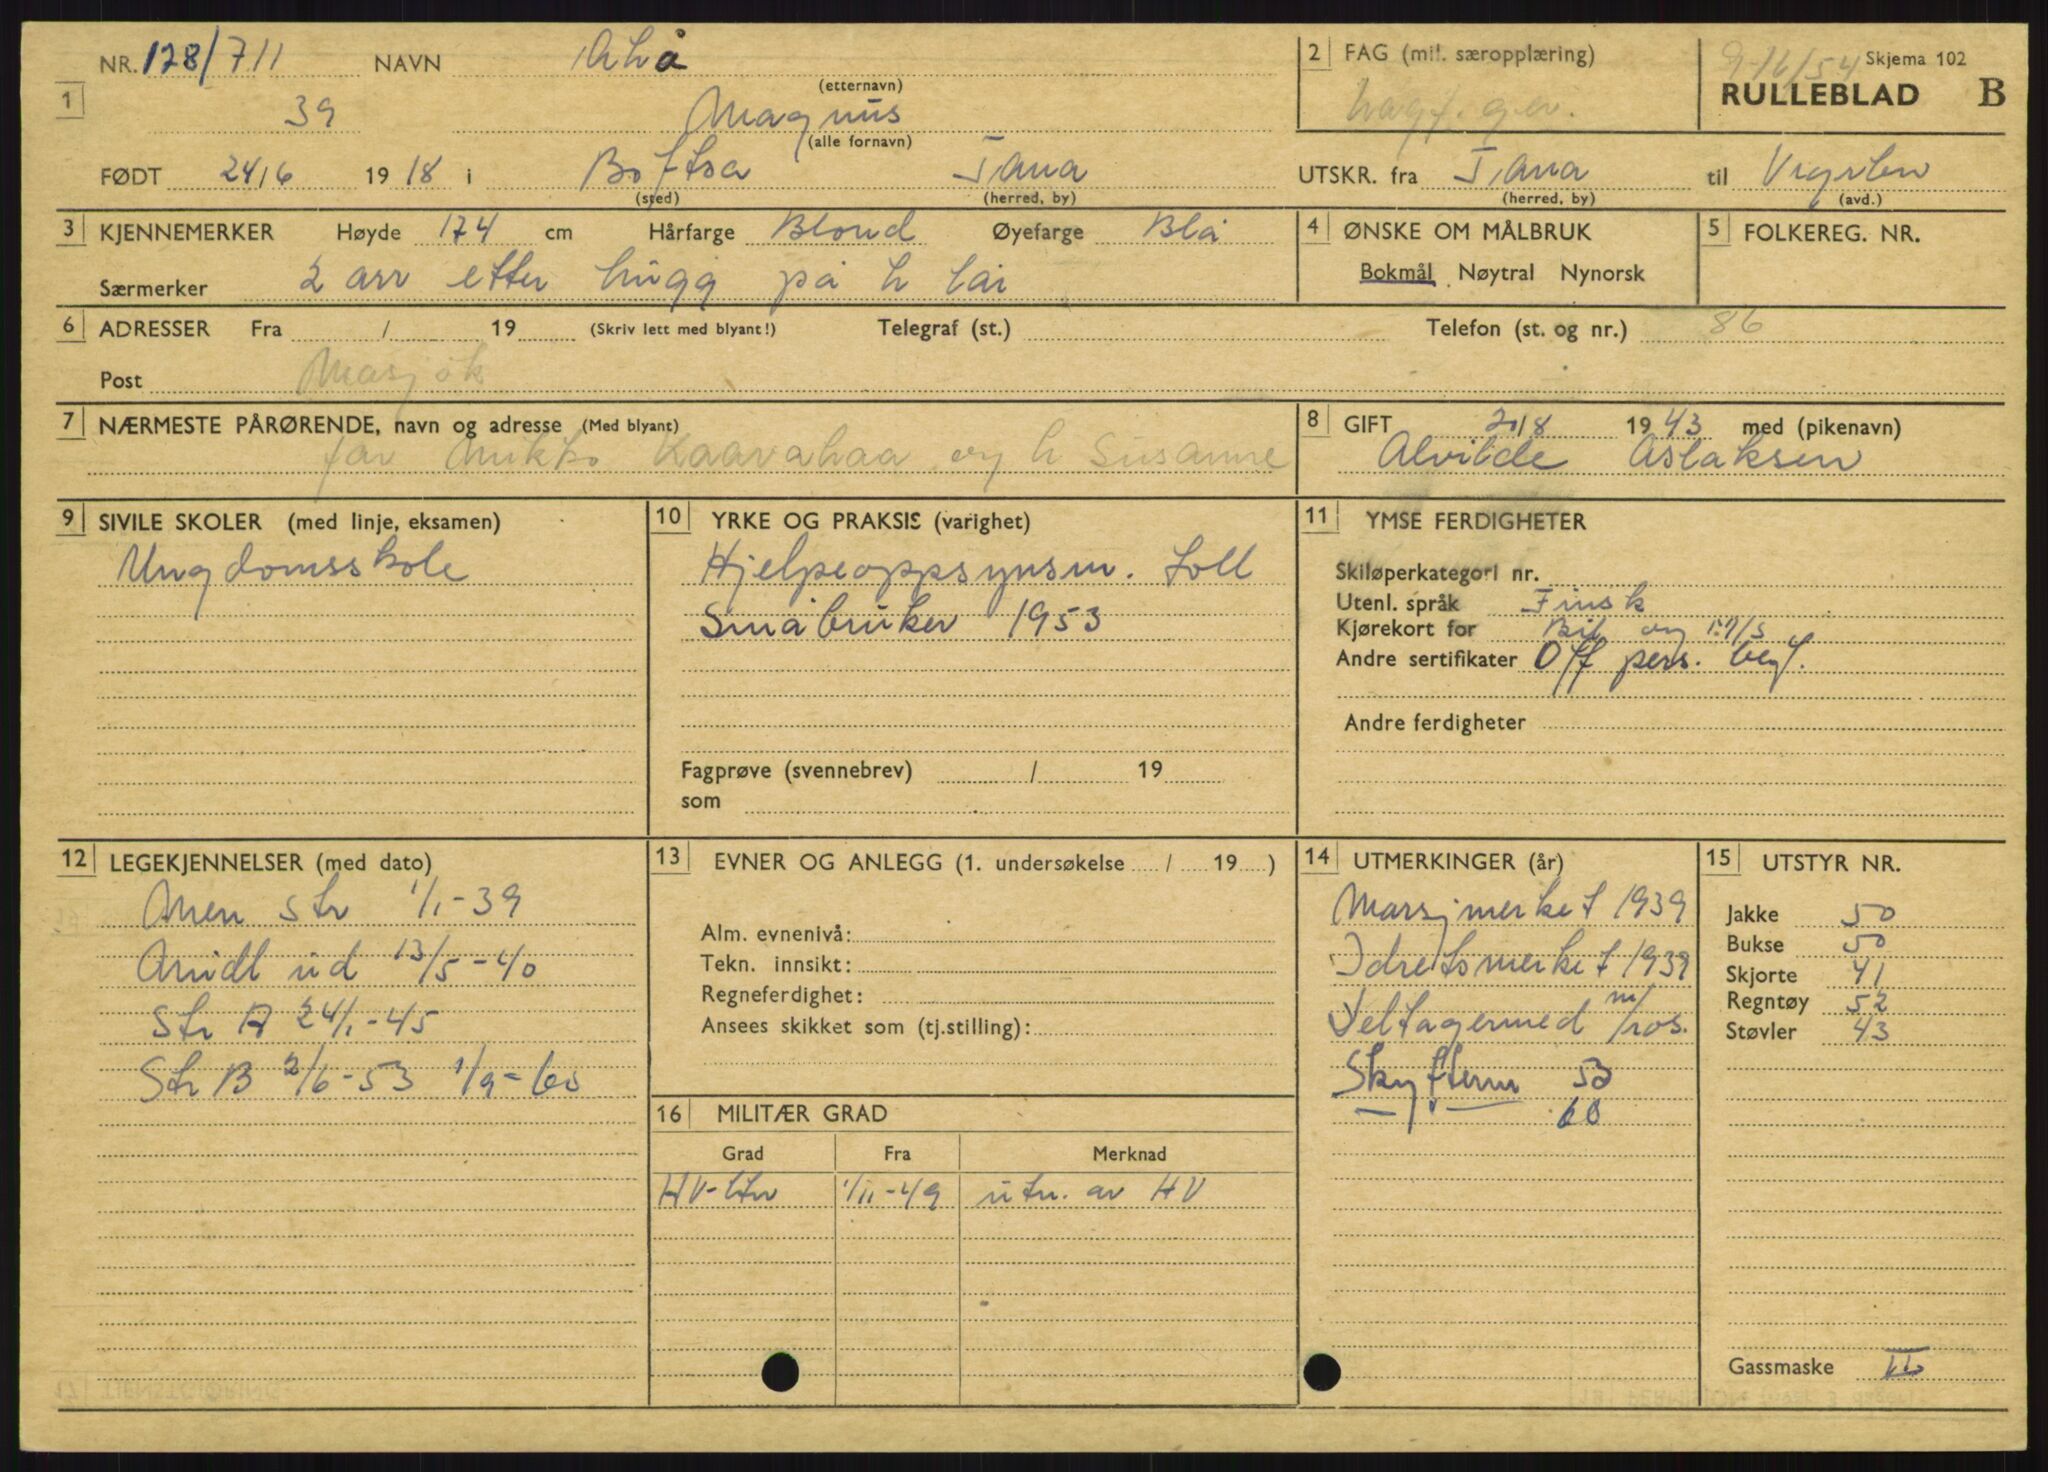 NR. 128/711 NAVN Aho
(etternavn)
2 FAG (mil. særopplæring)
Skjema 102
1 39 Magnus
(alle fornavn)
Lagf. gev.
RULLEBLAD B
FØDT 24/6 1918 i Boftsa Tana
(sted) (herred, by)
UTSKR. fra Tana til
(herred, by) (avd.)
3 KJENNEMERKER Høyde 174 cm Hårfarge Blond Øyefarge Blå
Særmerker 2 arr etter hugg på h lår
4 ØNSKE OM MÅLBRUK
Bokmål Nøytral Nynorsk
5 FOLKEREG. NR.
6 ADRESSER Fra / 19 (Skriv lett med blyant!) Telegraf (st.) Telefon (st. og nr.) 86
Post Masjok
7 NÆRMESTE PÅRØRENDE, navn og adresse (Med blyant)
far Mikko Kaavahaa og h Susanne
8 GIFT 20/8 1943 med (pikenavn)
Alvilde Aslaksen
9 SIVILE SKOLER (med linje, eksamen)
Ungdomsskole
10 YRKE OG PRAKSIS (varighet)
Hjelpeoppsynsm. toll
Småbruker 1953
Fagprøve (svennebrev) / 19
som
11 YMSE FERDIGHETER
Skiløperkategori nr.
Utenl. språk Finsk
Kjørekort for Bil og m/s
Andre sertifikater Off pers. bef.
Andre ferdigheter
12 LEGEKJENNELSER (med dato)
Men str 1/1-39
Midl ud 13/5-40
Str A 24/1-45
Str B 2/6-53 1/9-60
13 EVNER OG ANLEGG (1. undersøkelse / 19 )
Alm. evnenivå:
Tekn. innsikt:
Regneferdighet:
Ansees skikket som (tj.stilling):
16 MILITÆR GRAD
Grad Fra Merknad
HV-ltn 1/11-49 utn. av HV
14 UTMERKINGER (år)
Marsjmerket 1939
Idretsmerket 1939
Deltagermed m/ros.
Skytterm 53
60
15 UTSTYR NR.
Jakke 50
Bukse 50
Skjorte 41
Regntøy 52
Støvler 43
Gassmaske III